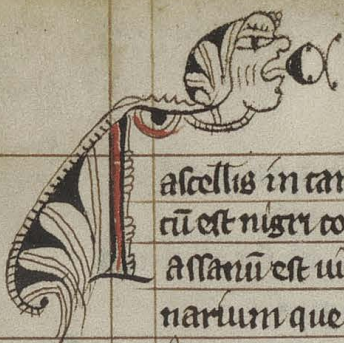 ascellis in car
cū est nigri co
assanū est ui
narium que